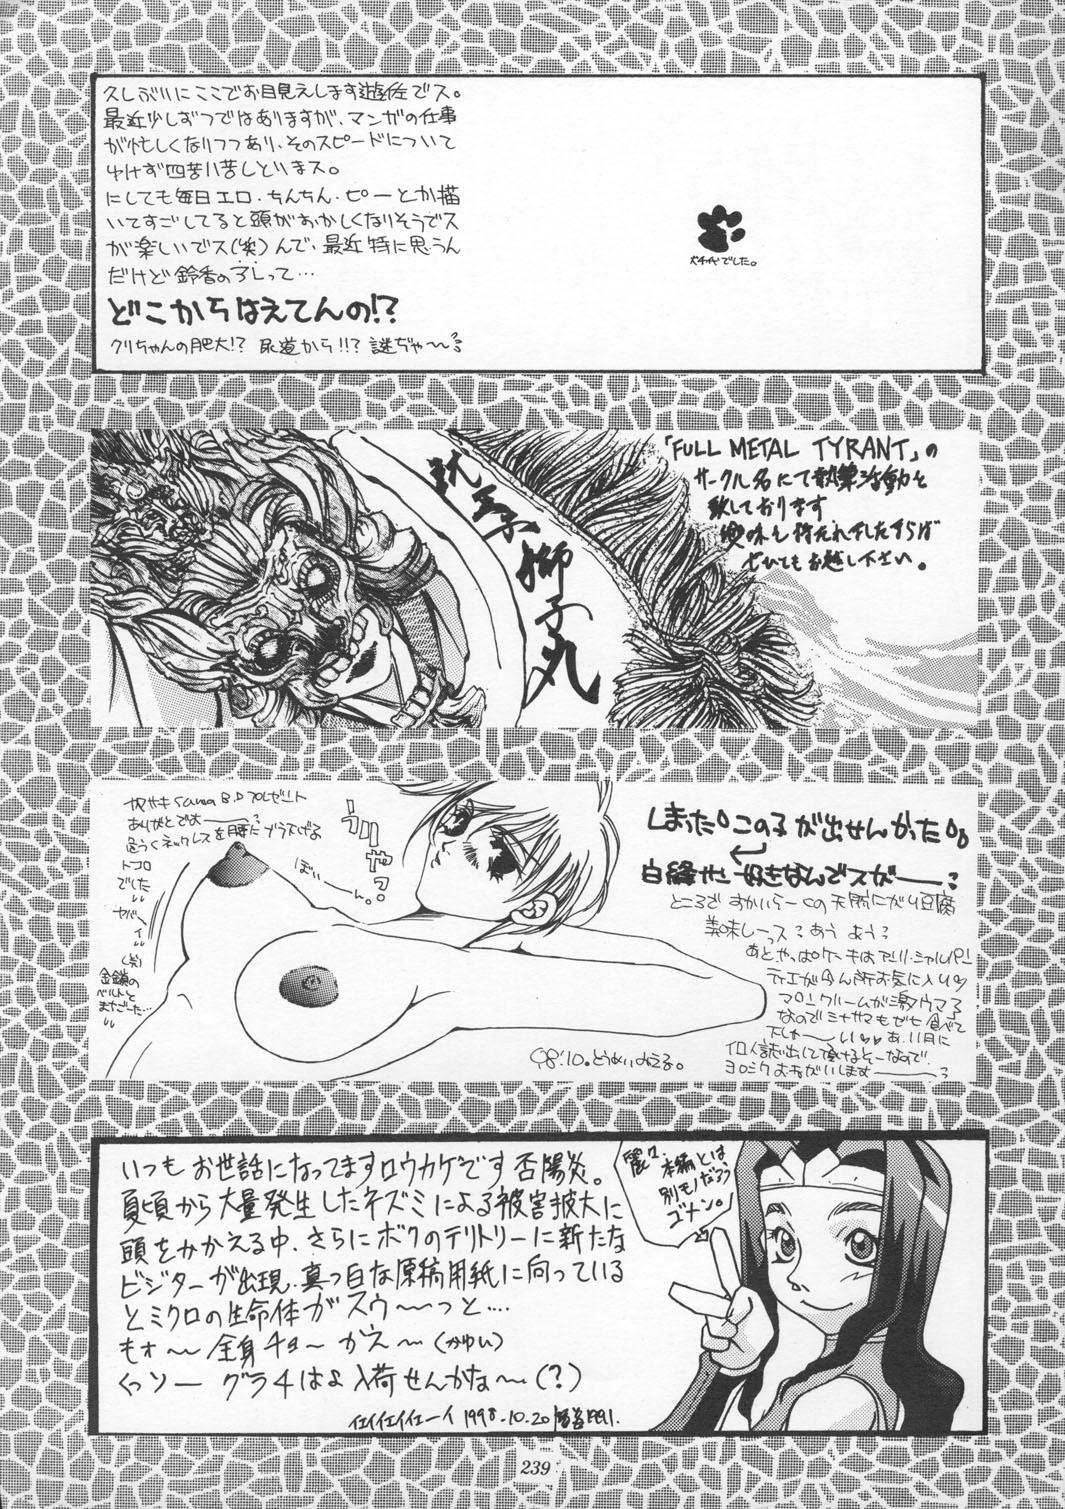 久しぶりにここでお目見えします遊佐でス。
最近少しずつではありますが、マンガの仕事
が忙しくなりつつあり、そのスピードについて
ゆけず四苦八苦しどいまス。
にしても毎日エロ・ちんちん・ピーとか描
いてすごしてると頭がおかしくなりそうでス
が楽しいでス(笑)んで、最近特に思うん
だけど鈴香のアレって…
どこからはえてんの!?
クリちゃんの肥大!? 尿道から!!? 謎ぢゃ〜〜
でした。
獅子丸
「FULL METAL TYRANT」の
サークル名にて執筆活動を
致しております
ぜひともお越し下さい。
B.D プレゼント
ありがとでおー
危うくネックレスを腰にブラ下げる
トコロ
でした
ヤバイ
(笑)
金鎖の
ベルトと
うりゃ?
ぼいーん。
しまった。このコが出せんかった。
好きなんでスがー
ところで すかいらーくの天然にがり豆腐
美味しーっス? あう よう?
マロンクリームが激ウマで
なのでミナサマもぜひ食べて
あ、11月に
ヨロシクおねがいします
98.10. とうめいみえる。
いつもお世話になってますロウカゲです否陽炎。
夏頃から大量発生したネズミによる被害拡大に
頭をかかえる中、さらにボクのテリトリーに新たな
ビジターが出現、真っ白な原稿用紙に向っている
とミクロの生命体がスウ〜〜っと….
もォ〜 全身チョ〜 かえ〜(かゆい)
くっソー グラ4はよ入荷せんかな〜(?)
1998.10.20
本編とは
別モノだろう
ゴメン。
239